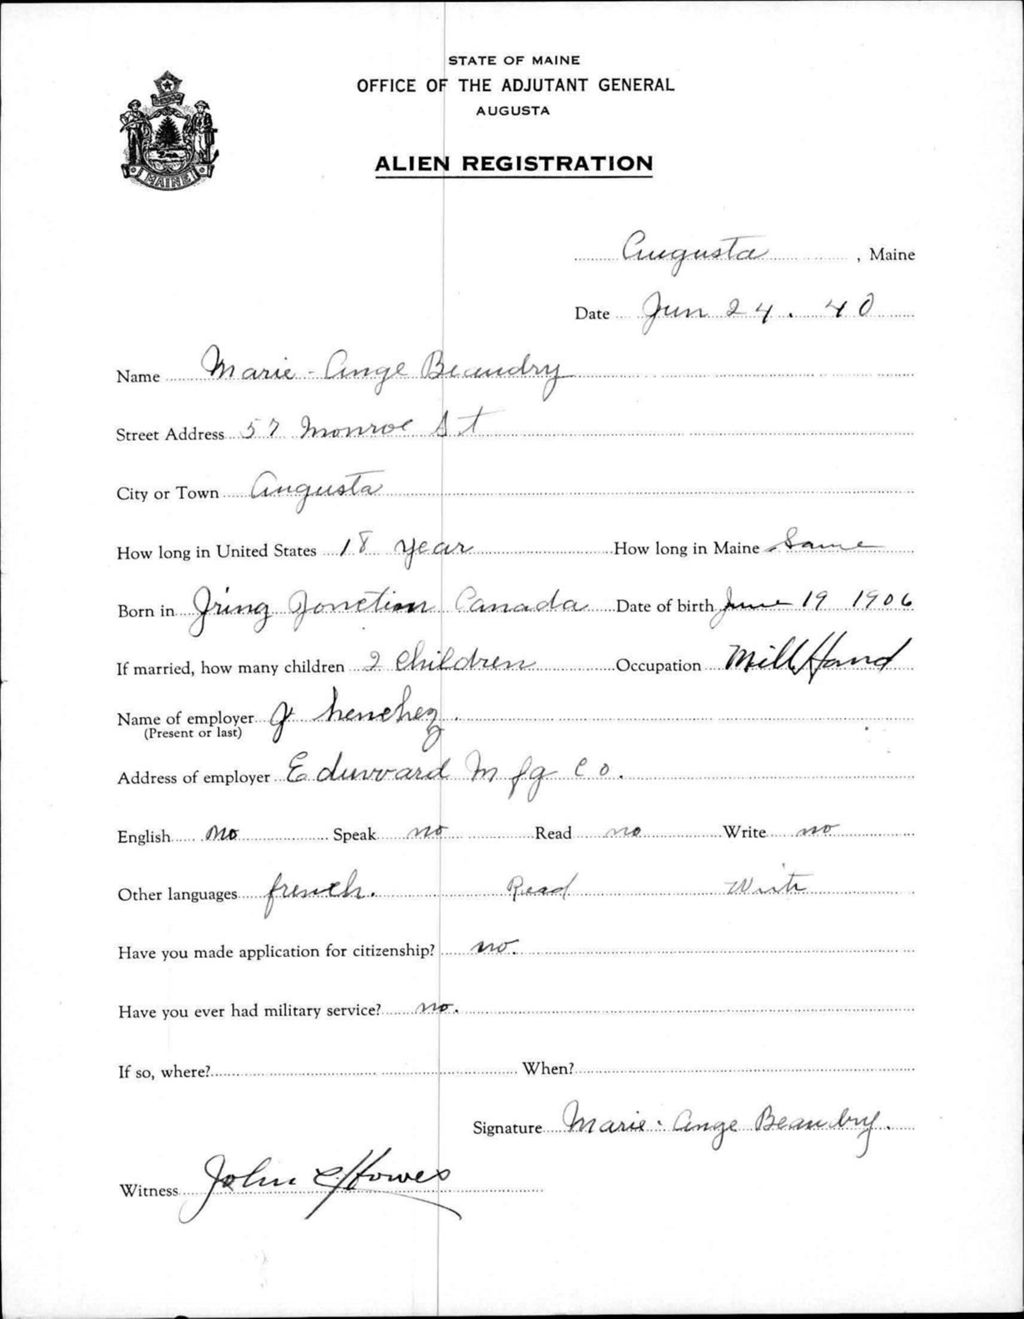 STATE OF MAINE
OFFICE OF THE ADJUTANT GENERAL
AUGUSTA
ALIEN REGISTRATION
MAINE
Augusta, Maine
Date Jun 24. 40
Name Marie-Ange Beaudry
Street Address 57 Monroe St
City or Town Augusta
How long in United States 18 year How long in Maine Same
Born in Jring Jonction Canada Date of birth June 19 1906
If married, how many children 2 children Occupation Mill Hand
Name of employer
(Present or last)
Address of employer Eduward Mfg Co.
English no Speak no Read no Write no
Other languages french. Read Write
Have you made application for citizenship? no.
Have you ever had military service? no.
If so, where? When?
Signature Marie-Ange Beaudry.
Witness John C Howes